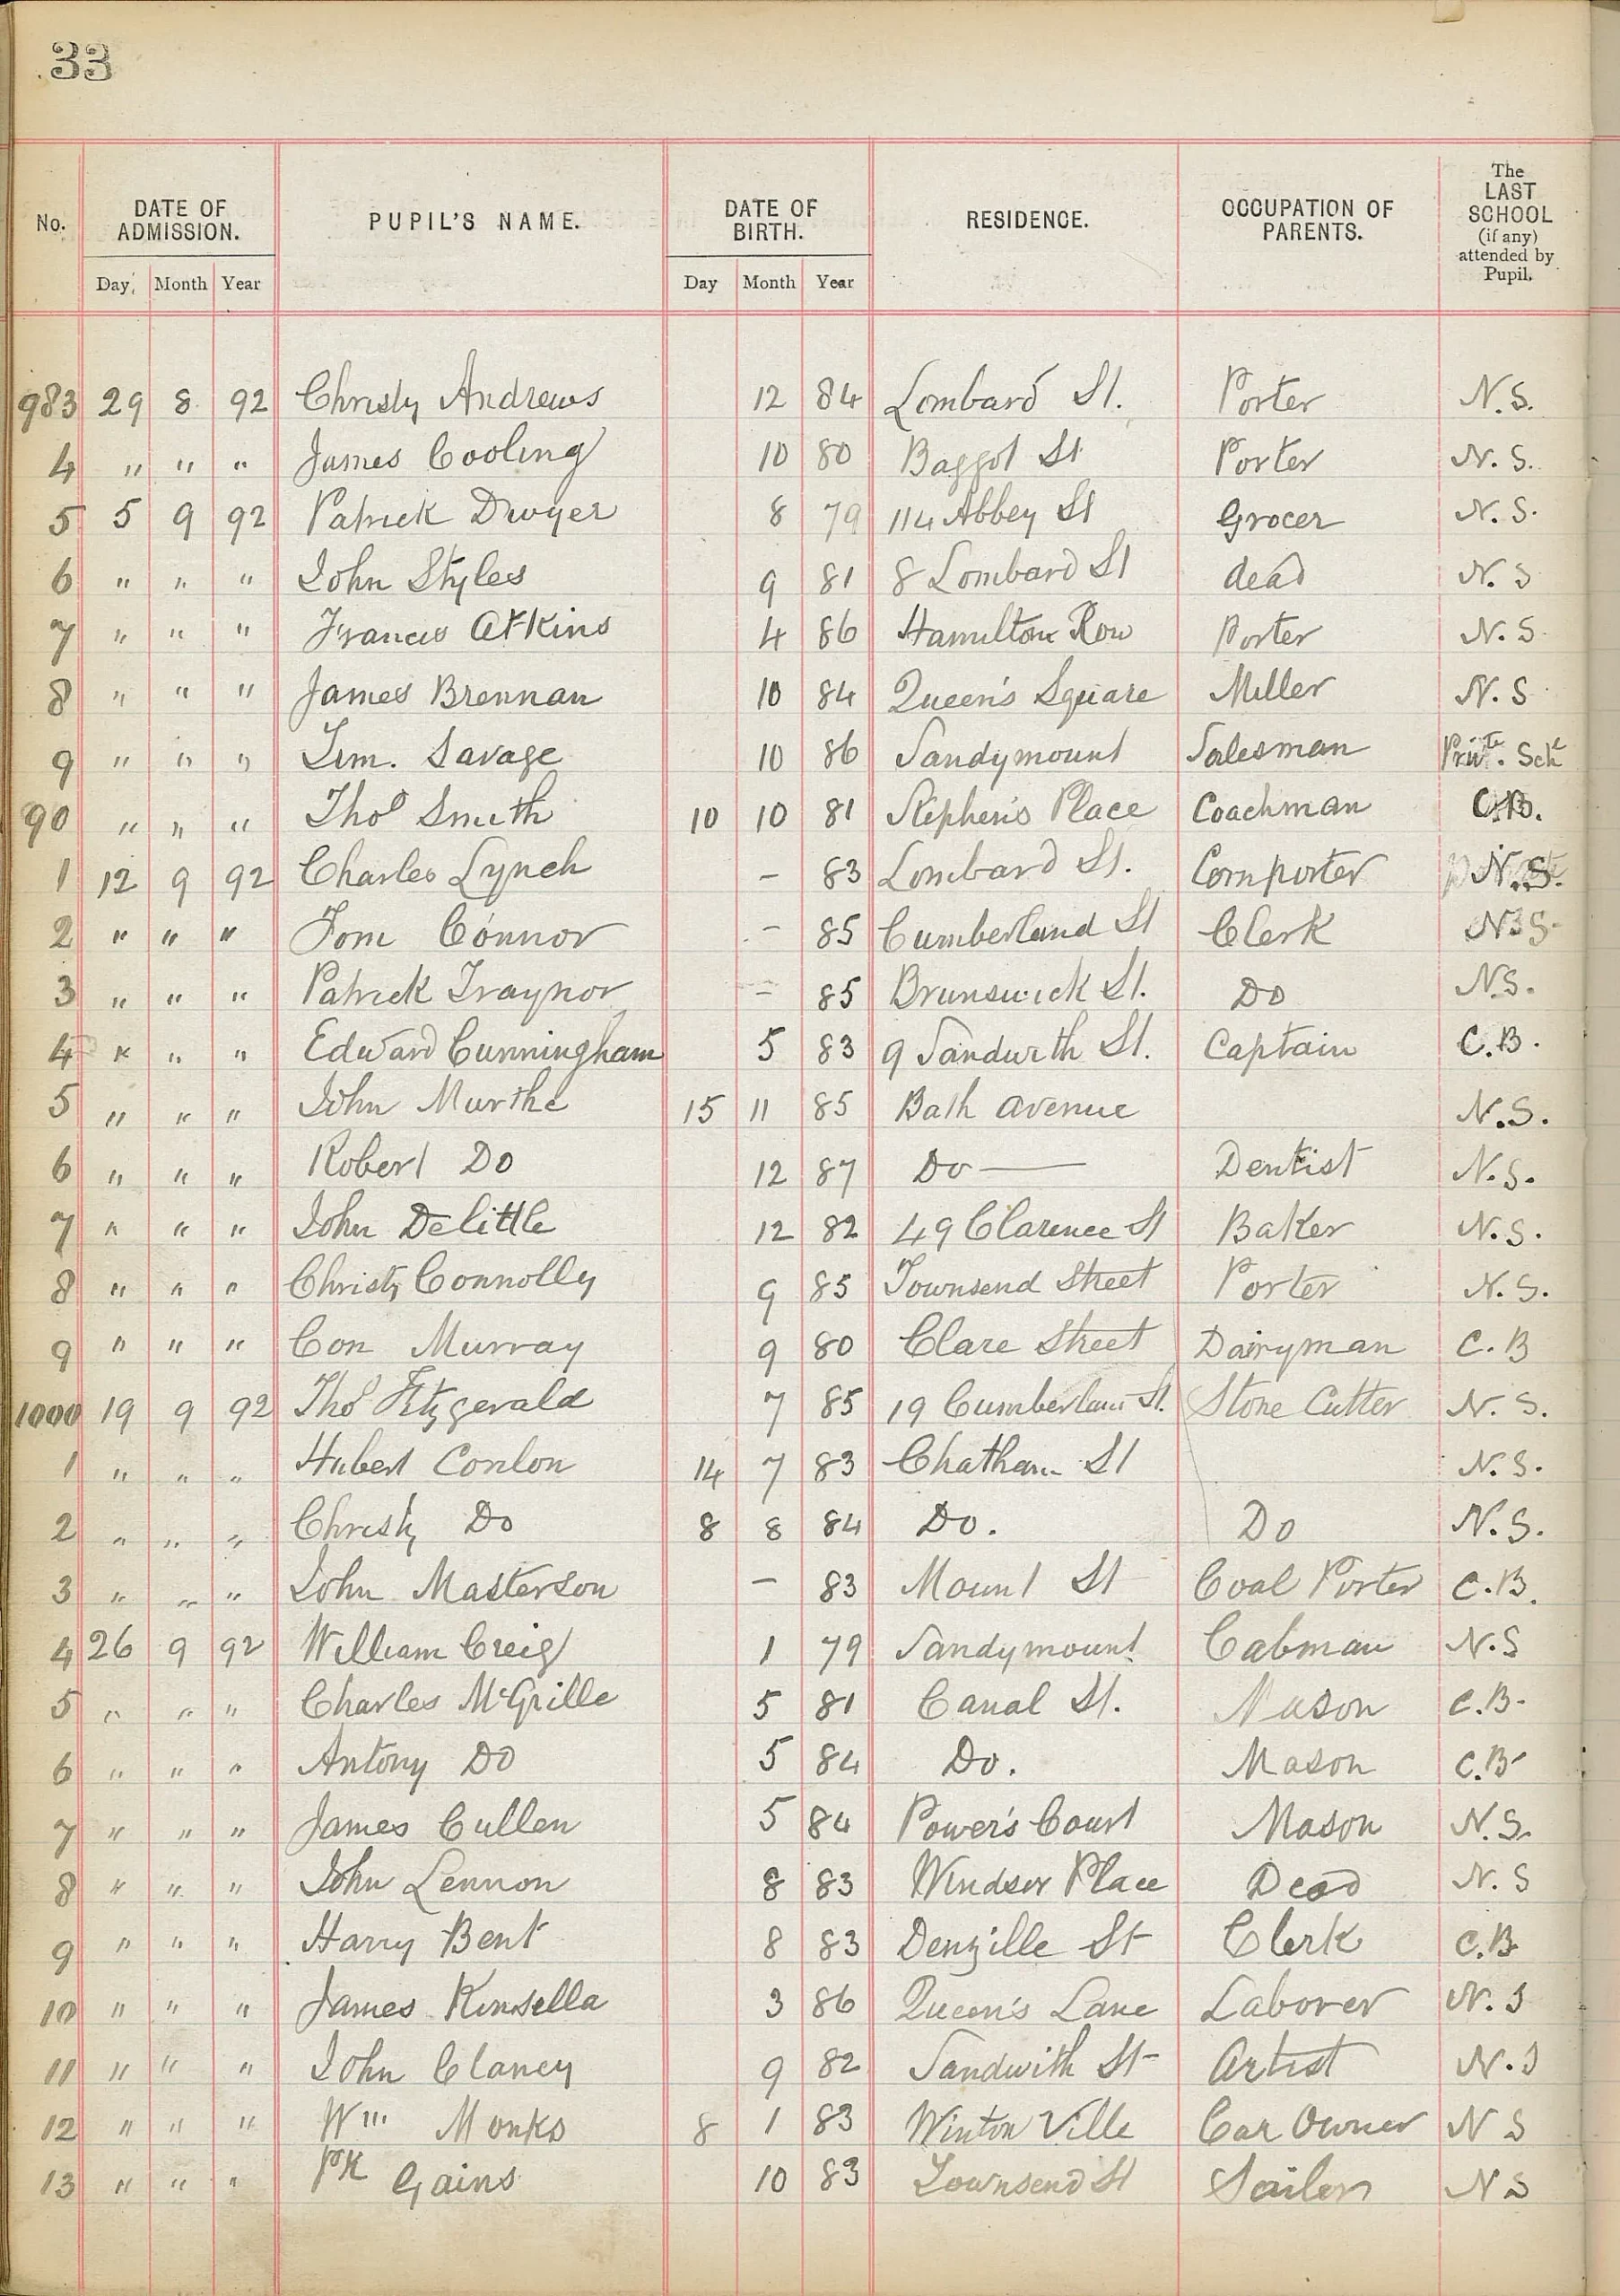 33
No. DATE OF ADMISSION. PUPIL'S NAME. DATE OF BIRTH. RESIDENCE. OCCUPATION OF PARENTS. The LAST SCHOOL (if any) attended by Pupil.
Day. Month Year Day Month Year
983 29 8 92 Christy Andrews 12 84 Lombard St. Porter N.S.
4 " " " James Cooling 10 80 Baggot St Porter N.S.
5 5 9 92 Patrick Dwyer 8 79 114 Abbey St Grocer N.S.
6 " " " John Styles 9 81 8 Lombard St dead N.S
7 " " " Francis Atkins 4 86 Hamilton Row Porter N.S.
8 " " " James Brennan 10 84 Queen's Square Miller N.S
9 " " " Tim. Savage 10 86 Sandymount Salesman Priv.te Sch
90 " " " Thos Smith 10 10 81 Stephen's Place Coachman C.B.
1 12 9 92 Charles Lynch – 83 Lombard St. Cornporter N.S.
2 " " " Tom Connor – 85 Cumberland St Clerk N.S.
3 " " " Patrick Traynor – 85 Brunswick St. Do N.S.
4 " " " Edward Cunningham 5 83 9 Sandwith St. Captain C.B.
5 " " " John Murthe 15 11 85 Bath Avenue N.S.
6 " " " Robert Do 12 87 Do — Dentist N.S.
7 " " " John Delittle 12 82 49 Clarence St Baker N.S.
8 " " " Christy Connolly 9 85 Townsend Street Porter N.S.
9 " " " Con Murray 9 80 Clare Street Dairyman C.B
1000 19 9 92 Thos Fitzgerald 7 85 19 Cumberland St. Stone Cutter N.S.
1 " " " Hubert Conlon 14 7 83 Chatham St N.S.
2 " " " Christy Do 8 8 84 Do. Do N.S.
3 " " " John Masterson – 83 Mount St Coal Porter C.B.
4 26 9 92 William Creig 1 79 Sandymount Cabman N.S
5 " " " Charles McGrille 5 81 Canal St. Mason C.B.
6 " " " Antony Do 5 84 Do. Mason C.B
7 " " " James Cullen 5 84 Power's Court Mason N.S.
8 " " " John Lennon 8 83 Windsor Place Dead N.S
9 " " " Harry Bent 8 83 Denzille St Clerk C.B
10 " " " James Kinsella 3 86 Queen's Lane Laborer N.S
11 " " " John Clancy 9 82 Sandwith St Artist N.S
12 " " " Wm Monks 8 1 83 Winton Ville Car Owner N S
13 " " " Pk Gains 10 83 Townsend St Sailor N S